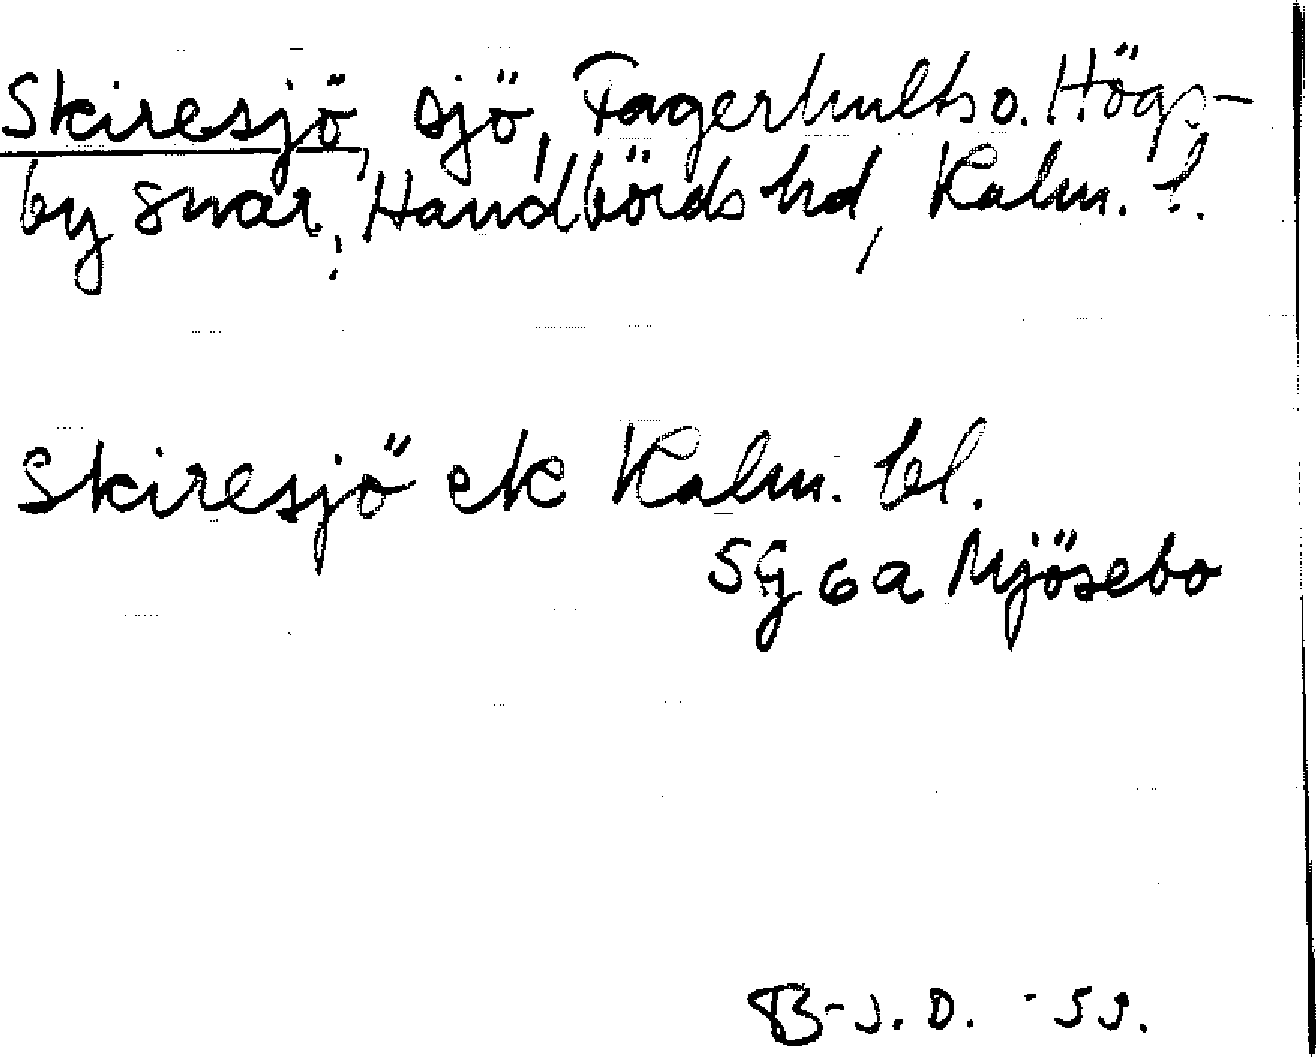 Skiresjö, sjö, Fagerhults o. Högs-
by snar, Handbörds hd, Kalm. l.
Skiresjö ek Kalm. bl.
SG 6a Mjösebo
B-J.D. -55.